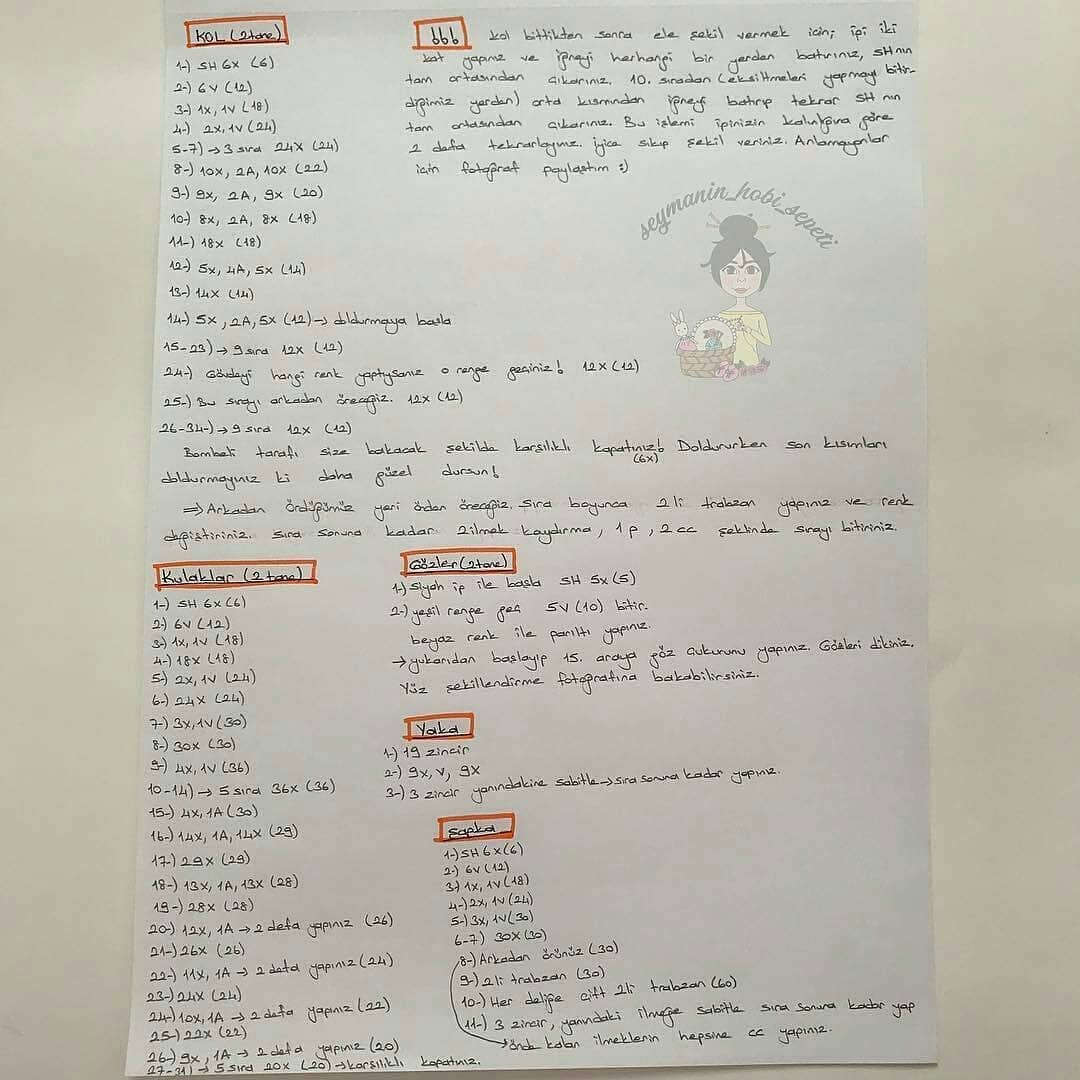 KOL (2 tane)
1-) SH 6x (6)
2-) 6V (12)
3-) 1x, 1V (18)
4-) 2x, 1V (24)
5-7) → 3 sıra 24x (24)
8-) 10x, 2A, 10x (22)
9-) 9x, 2A, 9x (20)
10-) 8x, 2A, 8x (18)
11-) 18x (18)
12-) 5x, 4A, 5x (14)
13-) 14x (14)
14-) 5x, 2A, 5x (12) → doldurmaya başla
15-23) → 9 sıra 12x (12)
24-) Gövdeyi hangi renk yaptıysanız o renge geçiniz! 12x (12)
25-) Bu sırayı arkadan öreceğiz. 12x (12)
26-34-) → 9 sıra 12x (12)
Bombeli tarafı size bakacak şekilde karşılıklı kapatınız! Doldururken son kısımları
(6x)
doldurmayınız ki daha güzel dursun!
⇒ Arkadan ördüğümüz yeri önden öreceğiz. Sıra boyunca 2li trabzan yapınız ve renk
değiştiriniz. Sıra sonuna kadar 2 ilmek kaydırma, 1 p, 2 cc şeklinde sırayı bitiriniz.
!!! kol bittikten sonra ele şekil vermek için; ipi iki
kat yapınız ve iğneyi herhangi bir yerden batırınız, SH nın
tam ortasından çıkarınız. 10. sıradan (eksiltmeleri yapmayı bitir-
diğimiz yerden) orta kısmından iğneyi batırıp tekrar SH nın
tam ortasından çıkarınız. Bu işlemi ipinizin kalınlığına göre
2 defa tekrarlayınız. İyice sıkıp şekil veriniz. Anlamayanlar
için fotoğraf paylaştım :)
seymanin_hobi_sepeti
Kulaklar (2 tane)
1-) SH 6x (6)
2-) 6V (12)
3-) 1x, 1V (18)
4-) 18x (18)
5-) 2x, 1V (24)
6-) 24x (24)
7-) 3x, 1V (30)
8-) 30x (30)
9-) 4x, 1V (36)
10-14) → 5 sıra 36x (36)
15-) 4x, 1A (30)
16-) 14x, 1A, 14x (29)
17-) 29x (29)
18-) 13x, 1A, 13x (28)
19-) 28x (28)
20-) 12x, 1A → 2 defa yapınız (26)
21-) 26x (26)
22-) 11x, 1A → 2 defa yapınız (24)
23-) 24x (24)
24-) 10x, 1A → 2 defa yapınız (22)
25-) 22x (22)
26-) 9x, 1A → 2 defa yapınız (20)
27-31) → 5 sıra 20x (20) → karşılıklı kapatınız.
Gözler (2 tane)
1-) Siyah ip ile başla SH 5x (5)
2-) yeşil renge geç 5V (10) bitir.
beyaz renk ile parıltı yapınız.
→ yukarıdan başlayıp 15. araya göz çukurunu yapınız. Gözleri dikiniz.
Yüz şekillendirme fotoğrafına bakabilirsiniz.
Yaka
1-) 19 zincir
2-) 9x, V, 9x
3-) 3 zincir yanındakine sabitle → sıra sonuna kadar yapınız.
Şapka
1-) SH 6x (6)
2-) 6V (12)
3-) 1x, 1V (18)
4-) 2x, 1V (24)
5-) 3x, 1V (30)
6-7) 30x (30)
8-) Arkadan örünüz (30)
9-) 2li trabzan (30)
10-) Her deliğe çift 2li trabzan (60)
11-) 3 zincir, yanındaki ilmeğe sabitle sıra sonuna kadar yap
→ önde kalan ilmeklerin hepsine cc yapınız.